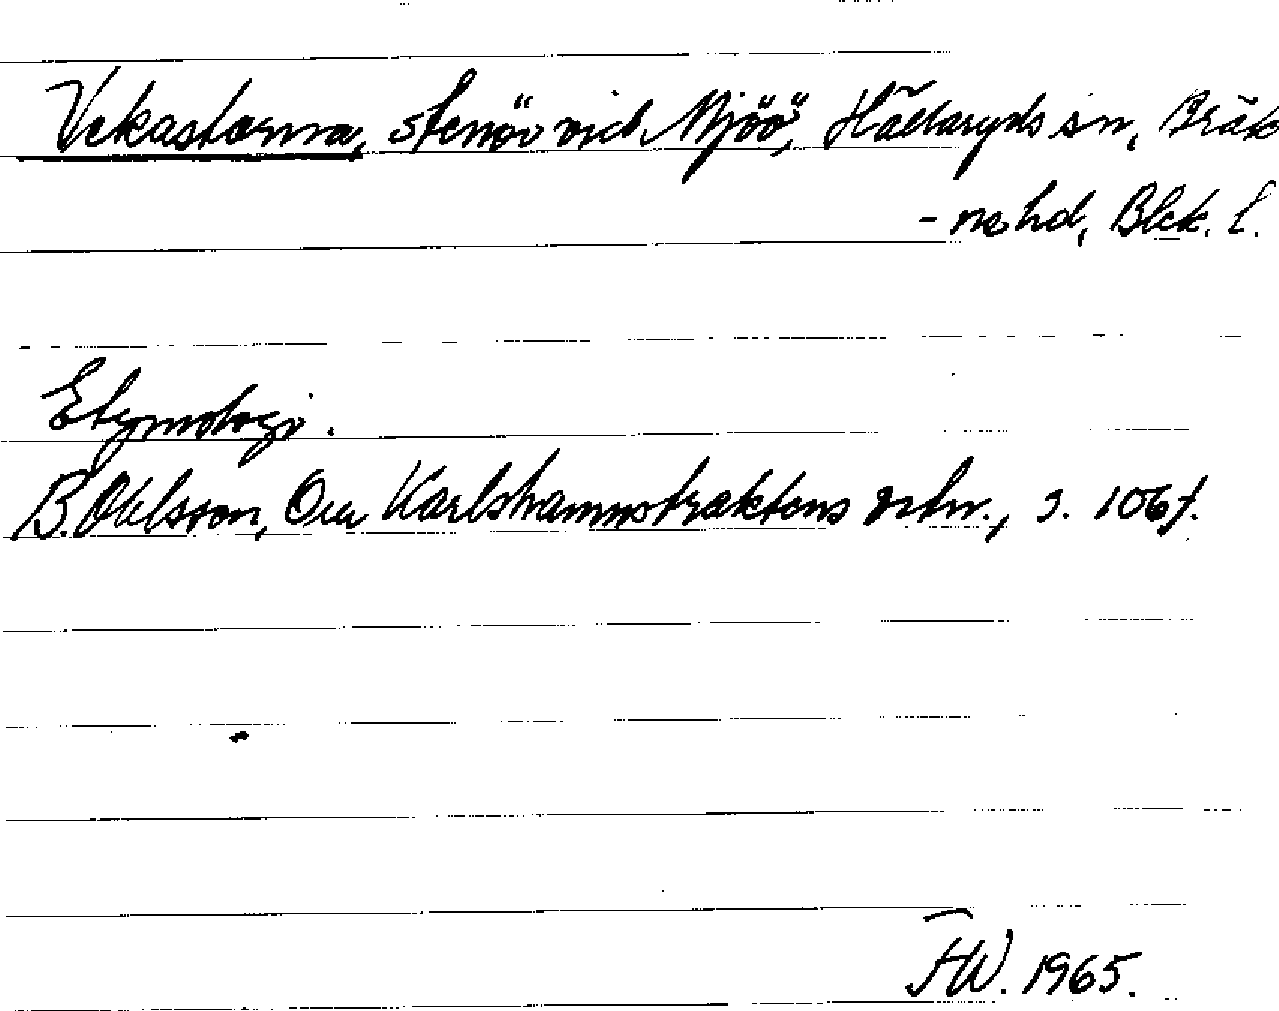 Vekastarna, stenör vid Mjöö, Hällaryds sn, Bräk
-nehd, Blek. l.
Etymologi.
B. Ohlsson, Om Karlshamnstraktens ortn., s. 106 f.
FW. 1965.